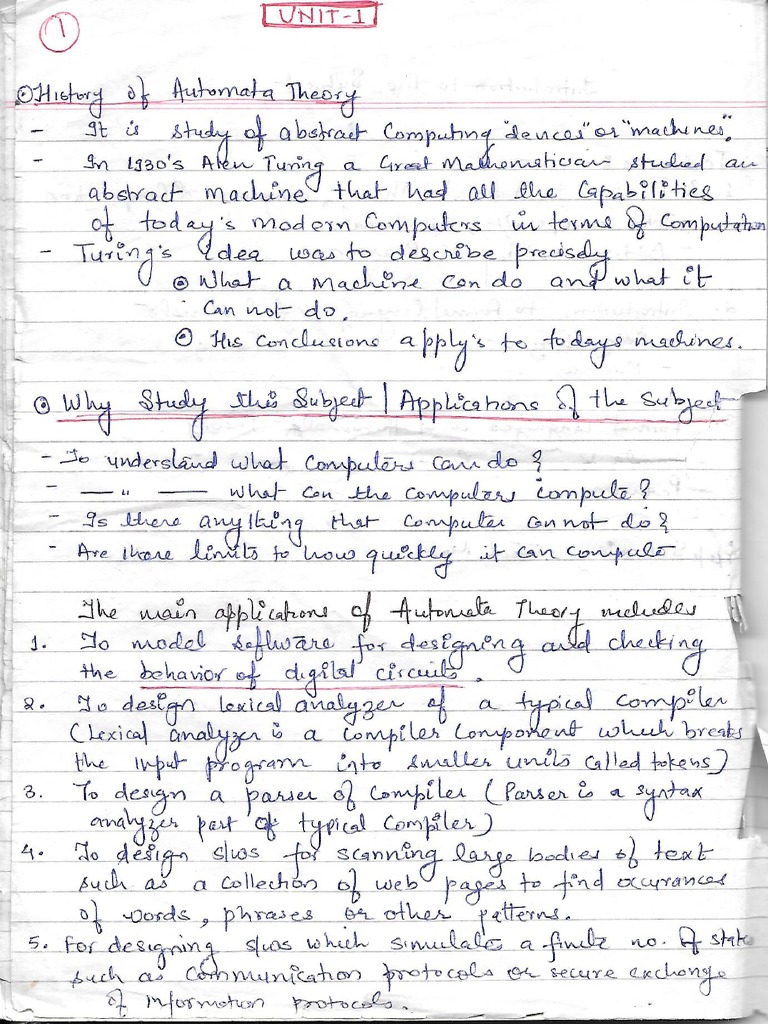 UNIT-1
1
History of Automata Theory
- It is study of abstract Computing "devices" or "machines".
- In 1930's Alen Turing a Great Mathematician studied an
abstract machine that had all the Capabilities
of today's modern Computers in terms of Computation
- Turing's Idea was to describe precisely
What a machine can do and what it
Can not do.
His Conclusions apply's to todays machines.
Why Study this Subject | Applications of the Subject
- To understand what Computers Can do?
- — " — what can the computers compute?
- Is there anything that Computer can not do?
- Are there limits to how quickly it can compute
The main applications of Automata Theory includes
1. To model software for designing and checking
the behavior of digital circuits.
2. To design lexical analyzer of a typical compiler
(Lexical analyzer is a compiler component which breaks
the input program into smaller units called tokens)
3. To design a parser of Compiler (Parser is a syntax
analyzer part of typical Compiler)
4. To design s/ws for scanning large bodies of text
such as a collection of web pages to find occurances
of words, phrases or other patterns.
5. For designing s/ws which simulate a finite no. of state
such as communication protocols or secure exchange
of Information protocols.